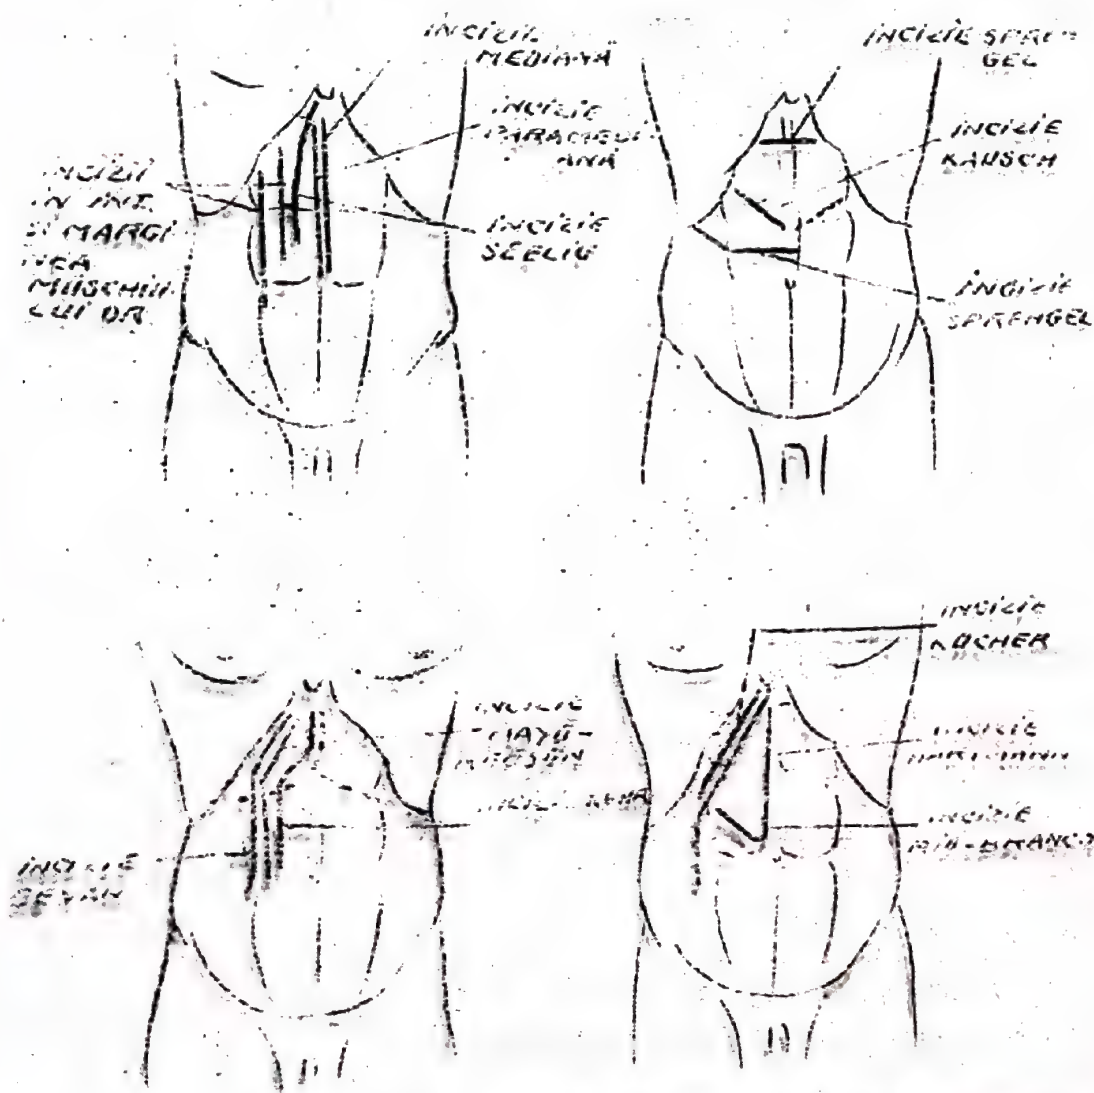 INCIZIE
MEDIANĂ
INCIZIE
PARAMEDI-
ANĂ
INCIZII
IN INT.
SI MARGI
NEA
MUSCHIU-
LUI DR.
INCIZIE
SEELIG
INCIZIE SPREN-
GEL
INCIZIE
KAUSCH
INCIZIE
SPRENGEL
INCIZIE
MAYO-
ROBSON
INCIZIE
INCIZIE
BEVAN
INCIZIE
KOCHER
INCIZIE
HARTMANN
INCIZIE
RIO-BRANCO